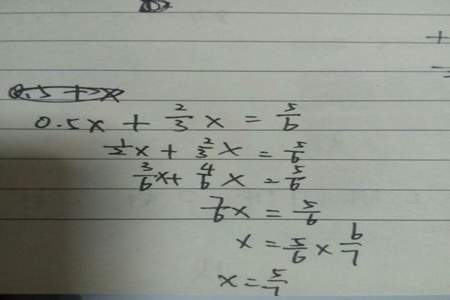 0.5x + 2/3 x = 5/6
1/2 x + 2/3 x = 5/6
3/6 x + 4/6 x = 5/6
7/6 x = 5/6
x = 5/6 × 6/7
x = 5/7